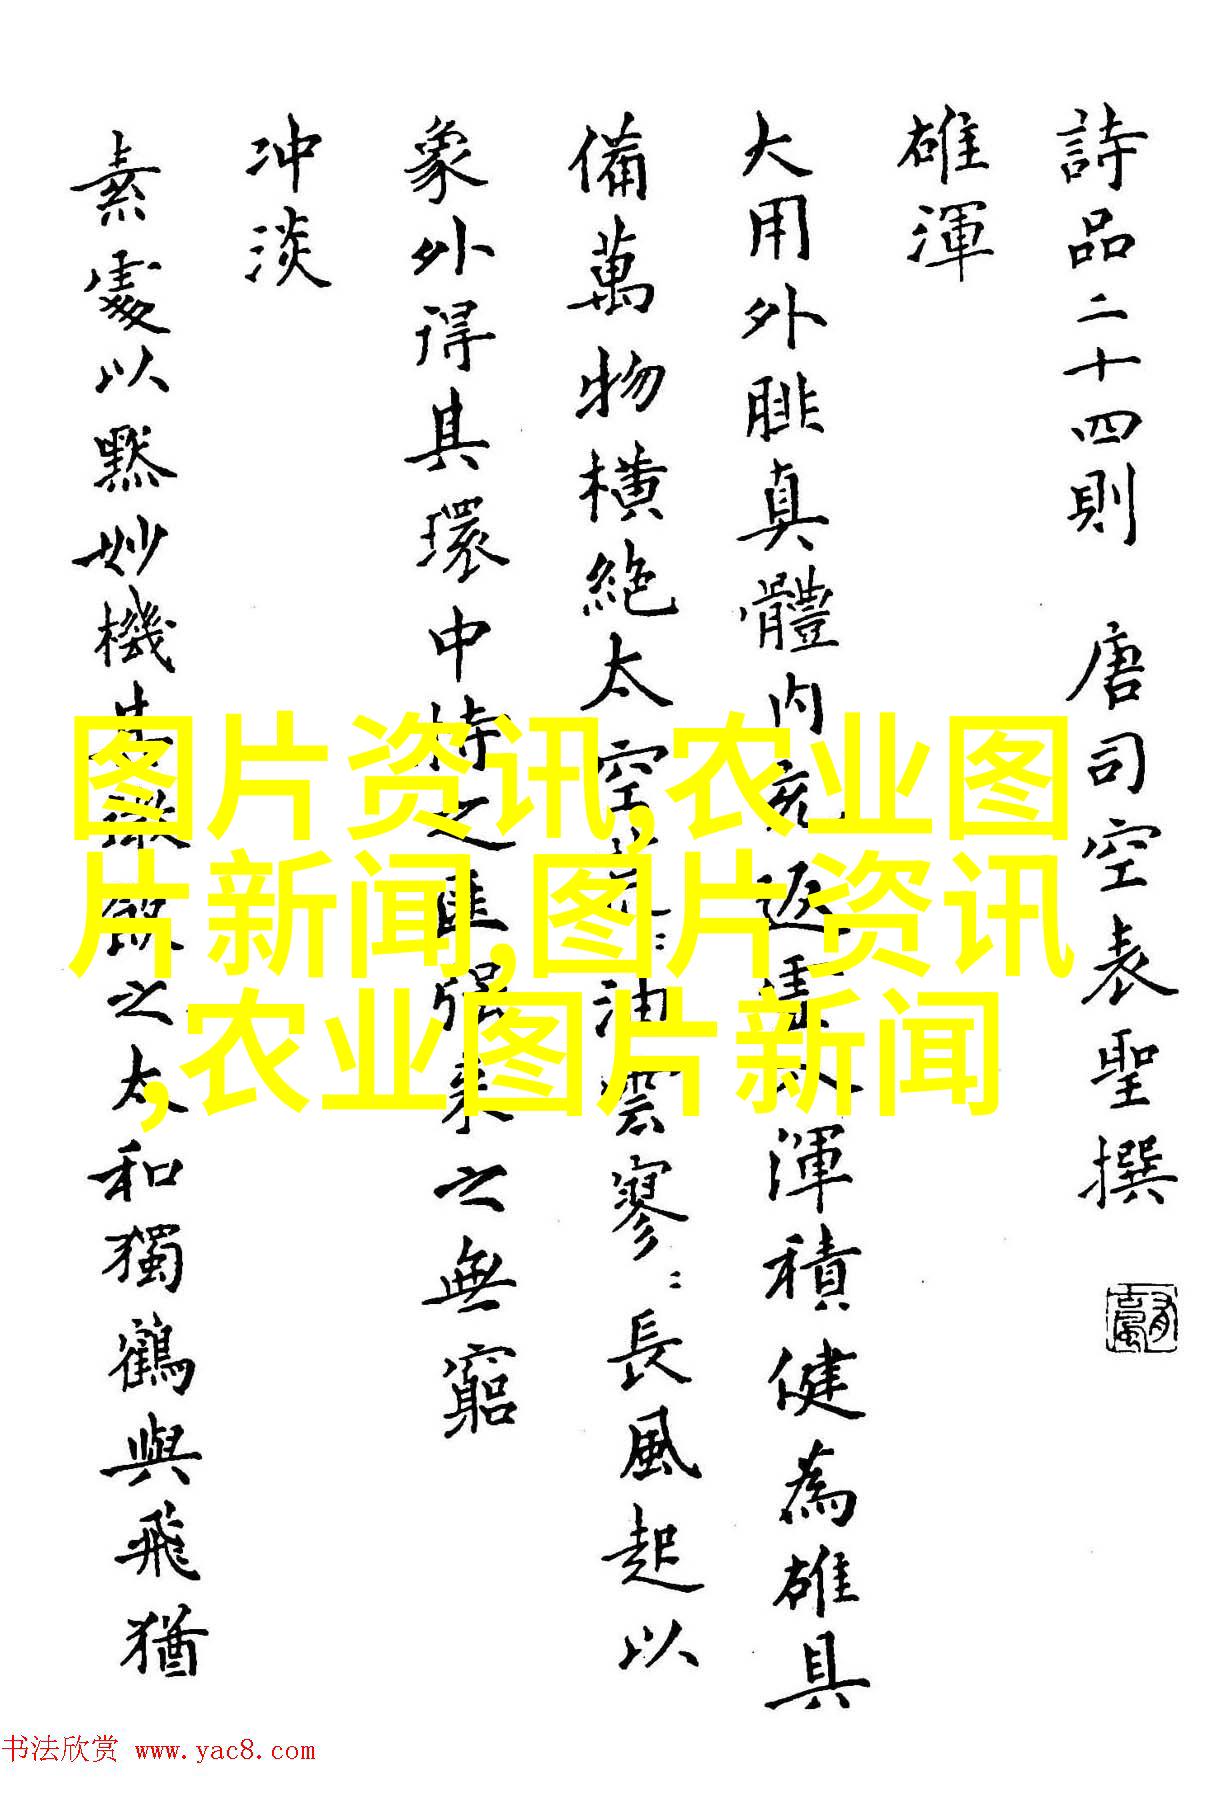 詩品二十四則 唐司空表聖撰
雄渾
大用外腓真體内充返虚入渾積健為雄具
備萬物橫絶太空荒〻油雲寥〻長風超以
象外得其環中持之匪强来之無窮
冲淡
素處以黙妙機其微飲之太和獨鶴與飛猶
图片资讯,农业图
片新闻,图片资讯
,农业图片新闻
书法欣赏 www.yac8.com